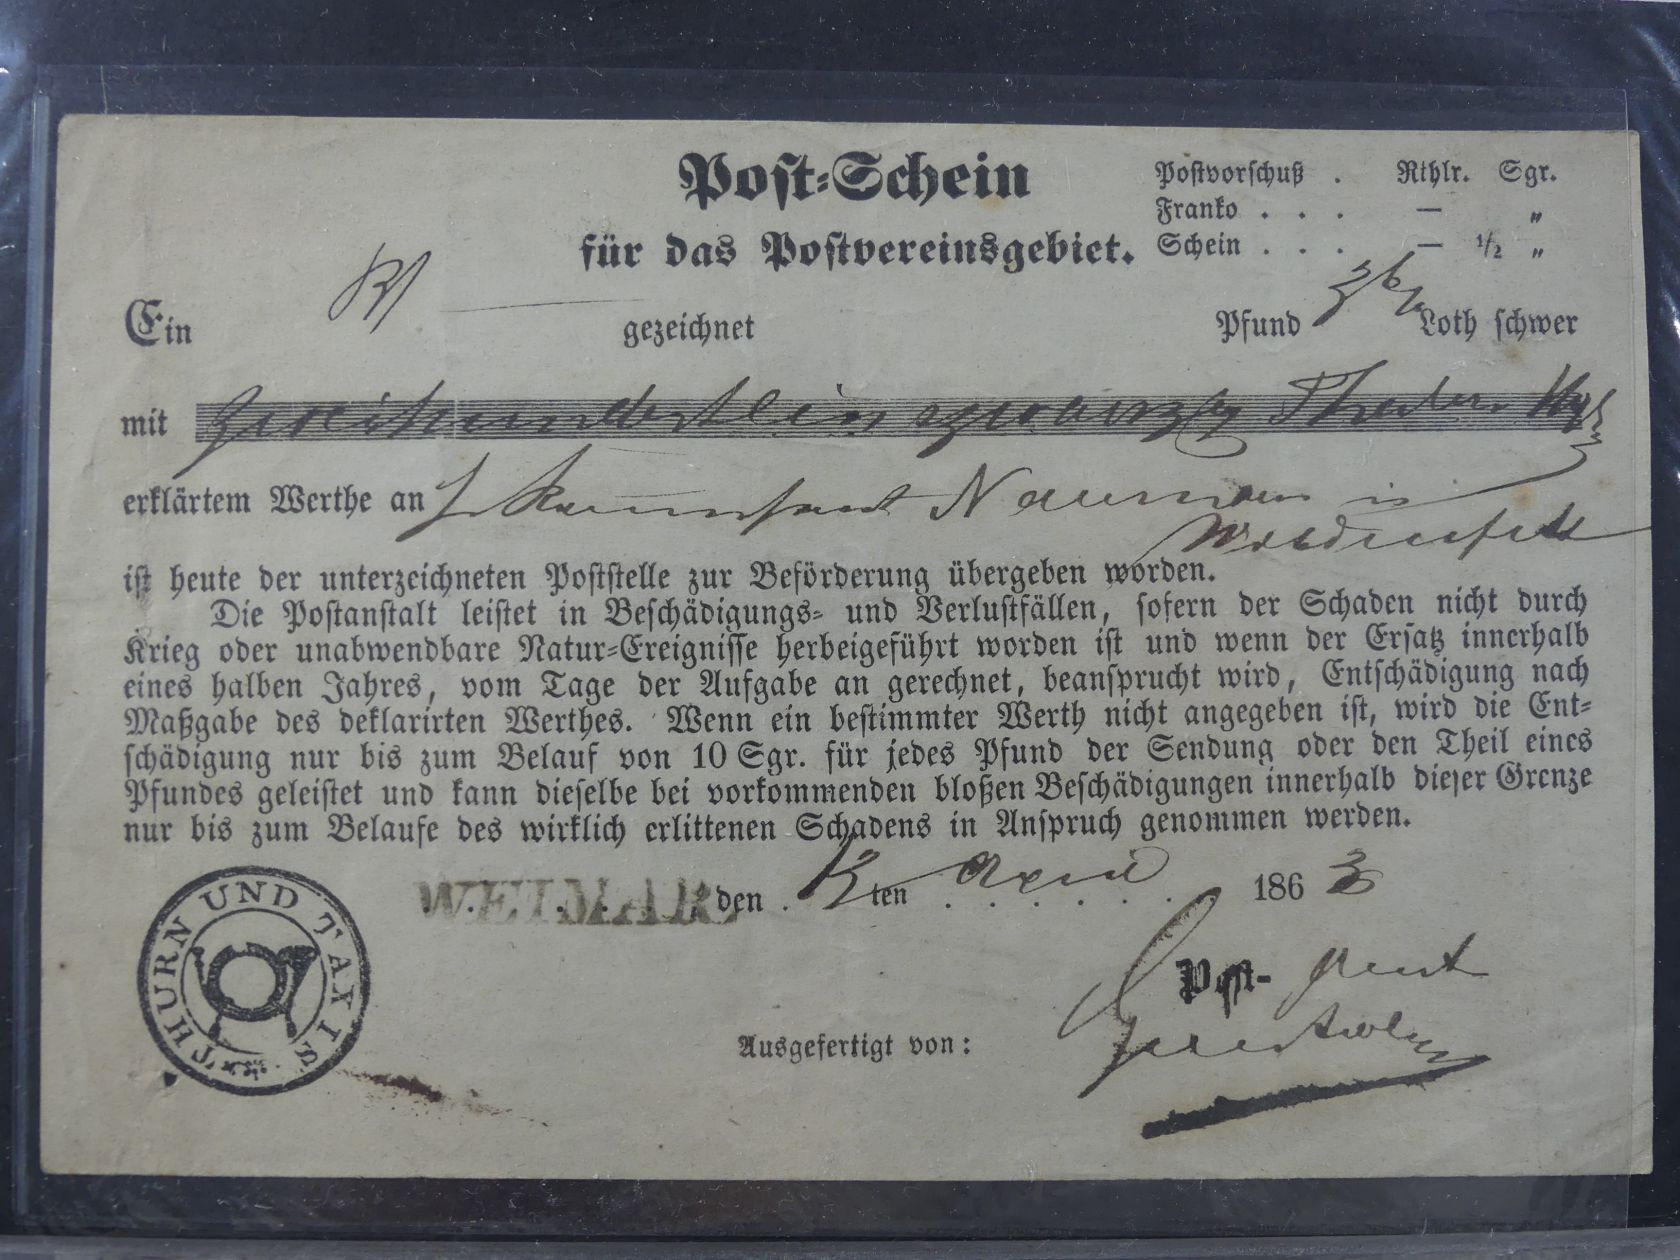 Post-Schein
für das Postvereinsgebiet.
Postvorschuß . Rthlr. Sgr.
Franko . . . — "
Schein . . . — ½ "
Ein gezeichnet Pfund Loth schwer
mit Thaler
erklärtem Werthe an Naumann in
ist heute der unterzeichneten Poststelle zur Beförderung übergeben worden.
Die Postanstalt leistet in Beschädigungs- und Verlustfällen, sofern der Schaden nicht durch
Krieg oder unabwendbare Natur-Ereignisse herbeigeführt worden ist und wenn der Ersatz innerhalb
eines halben Jahres, vom Tage der Aufgabe an gerechnet, beansprucht wird, Entschädigung nach
Maßgabe des deklarirten Werthes. Wenn ein bestimmter Werth nicht angegeben ist, wird die Ent-
schädigung nur bis zum Belauf von 10 Sgr. für jedes Pfund der Sendung oder den Theil eines
Pfundes geleistet und kann dieselbe bei vorkommenden bloßen Beschädigungen innerhalb dieser Grenze
nur bis zum Belaufe des wirklich erlittenen Schadens in Anspruch genommen werden.
WEIMAR den ten April 1863
THURN UND TAXIS
Post-
Ausgefertigt von: